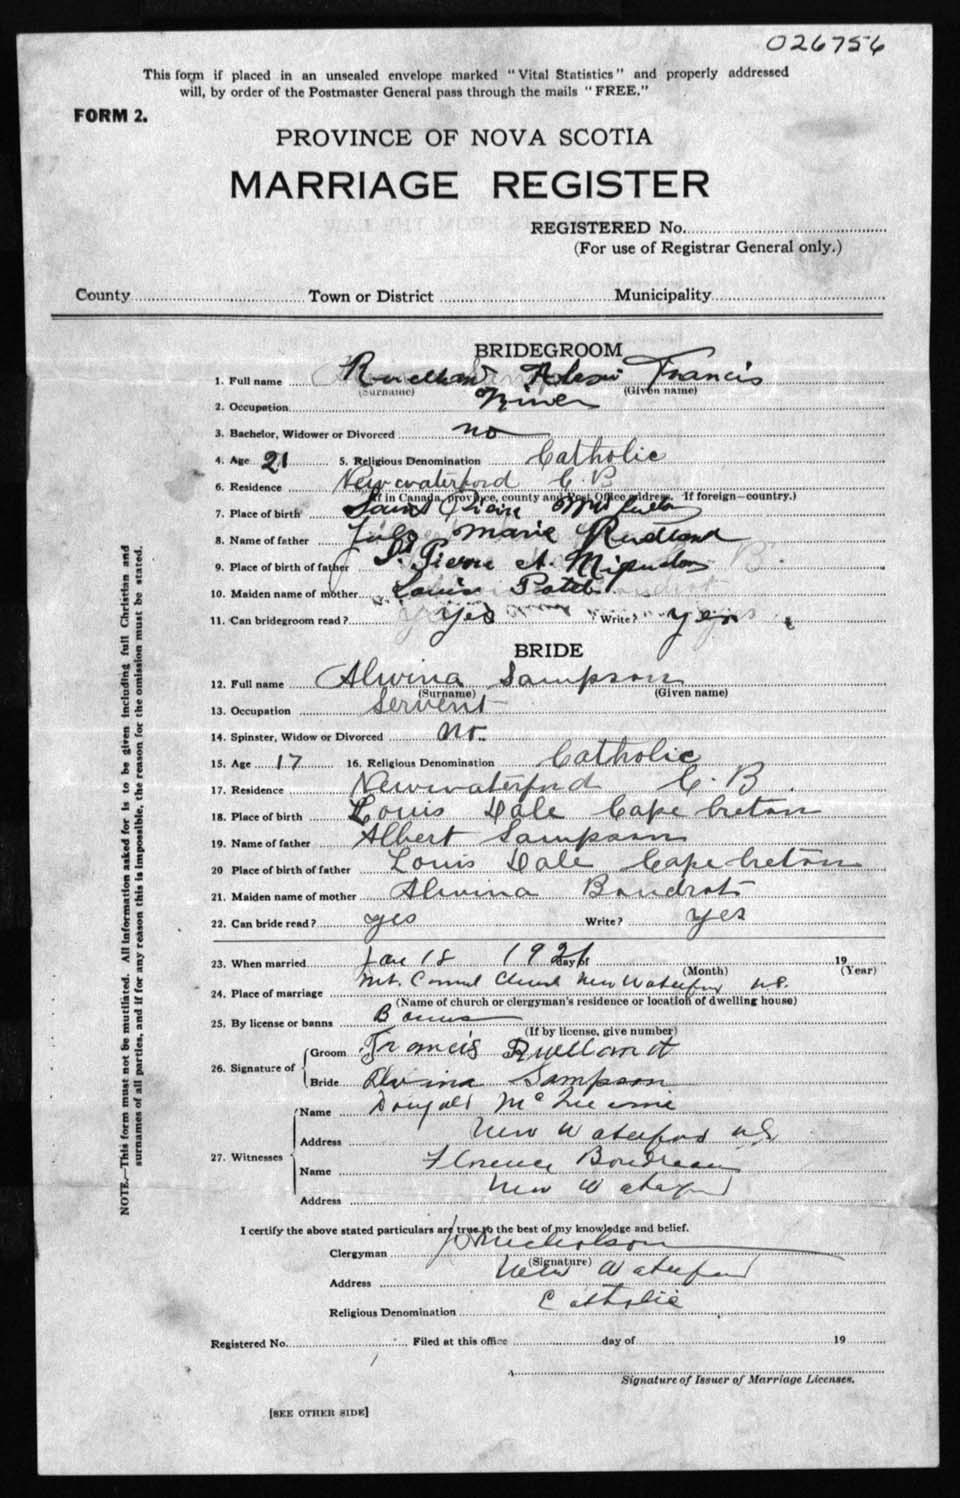 026756
This form if placed in an unsealed envelope marked "Vital Statistics" and properly addressed
will, by order of the Postmaster General pass through the mails "FREE."
FORM 2.
PROVINCE OF NOVA SCOTIA
MARRIAGE REGISTER
REGISTERED No.
(For use of Registrar General only.)
County Town or District Municipality
BRIDEGROOM
1. Full name Francis
(Surname) (Given name)
2. Occupation Miner
3. Bachelor, Widower or Divorced no
4. Age 21 5. Religious Denomination Catholic
6. Residence Newwaterford C. B
(If in Canada, province, county and Post Office address. If foreign—country.)
7. Place of birth Saint Pierre
8. Name of father Marie
9. Place of birth of father St. Pierre
10. Maiden name of mother
11. Can bridegroom read? Yes Write? yes
BRIDE
12. Full name Alwina Sampson
(Surname) (Given name)
13. Occupation Servent
14. Spinster, Widow or Divorced no.
15. Age 17 16. Religious Denomination Catholic
17. Residence Newwaterford C. B.
18. Place of birth Louis Dale Cape breton
19. Name of father Albert Sampson
20 Place of birth of father Louis Dale Cape breton
21. Maiden name of mother Alwina Boudrot
22. Can bride read? yes Write? yes
23. When married Jan 18 1921 day of 19
(Month) (Year)
24. Place of marriage Mt. Carmel Church New Waterford N.S.
(Name of church or clergyman's residence or location of dwelling house)
25. By license or banns Banns
(If by license, give number)
26. Signature of
Groom Francis Ruellant
Bride Alvina Sampson
27. Witnesses
Name Dougald
Address New Waterford N.S.
Name Florence Boudreau
Address New Waterford
I certify the above stated particulars are true to the best of my knowledge and belief.
Clergyman Nicholson
(Signature)
Address New Waterford
Religious Denomination Catholic
Registered No. Filed at this office day of 19
Signature of Issuer of Marriage Licenses.
[SEE OTHER SIDE]
NOTE.—This form must not be mutilated. All information asked for is to be given including full Christian and
surnames of all parties, and if for any reason this is impossible, the reason for the omission must be stated.